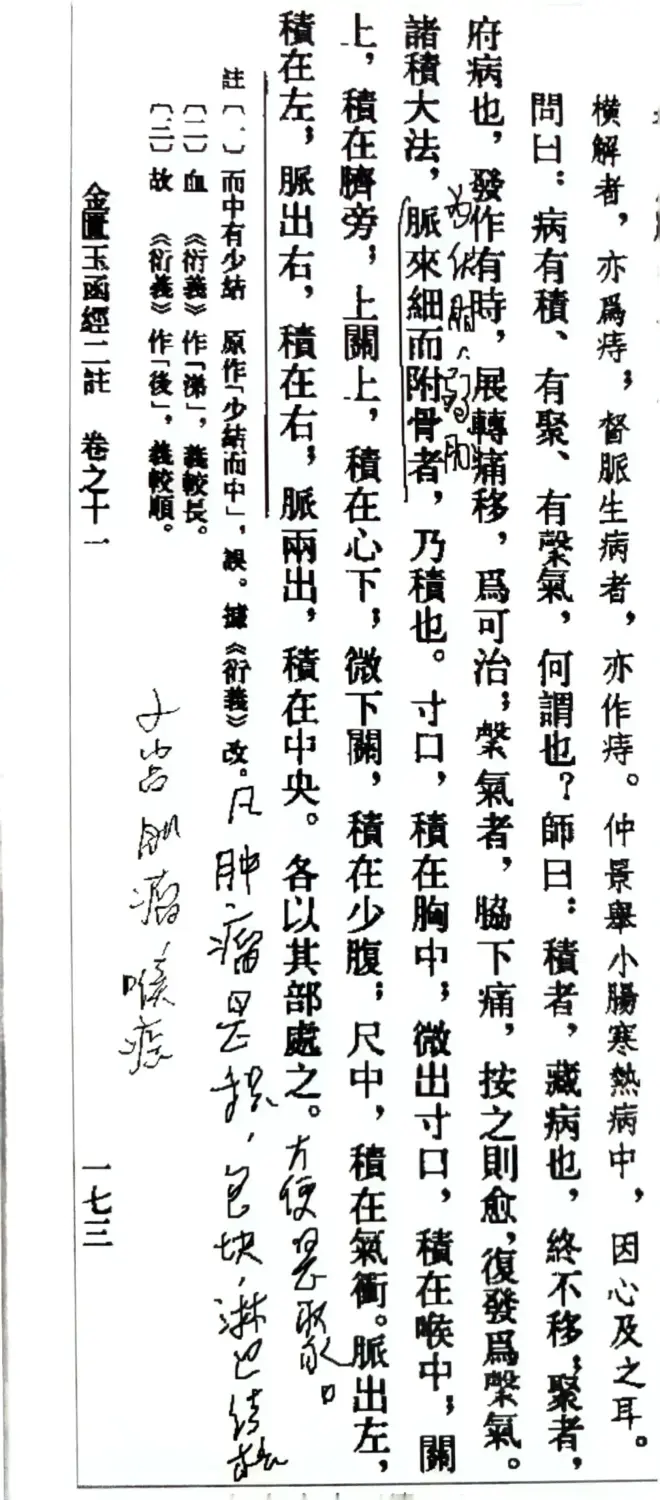 橫解者，亦爲痔；督脈生病者，亦作痔。仲景舉小腸寒熱病中，因心及之耳。
問曰：病有積、有聚、有䅽氣，何謂也？師曰：積者，藏病也，終不移；聚者，
府病也，發作有時，展轉痛移，爲可治；䅽氣者，脇下痛，按之則愈，復發爲䅽氣。
諸積大法，脈來細而附骨者，乃積也。寸口，積在胸中；微出寸口，積在喉中；關
上，積在臍旁；上關上，積在心下；微下關，積在少腹；尺中，積在氣衝。脈出左，
積在左；脈出右，積在右；脈兩出，積在中央。各以其部處之。
方便是聚。
註〔一〕而中有少結　原作「少結而中」，誤。據《衍義》改。
凡肿瘤是积，包块，淋巴结核
〔二〕血　《衍義》作「涕」，義較長。
〔三〕故　《衍義》作「後」，義較順。
子宫肌瘤，喉痰
金匱玉函經二註　卷之十一
一七三